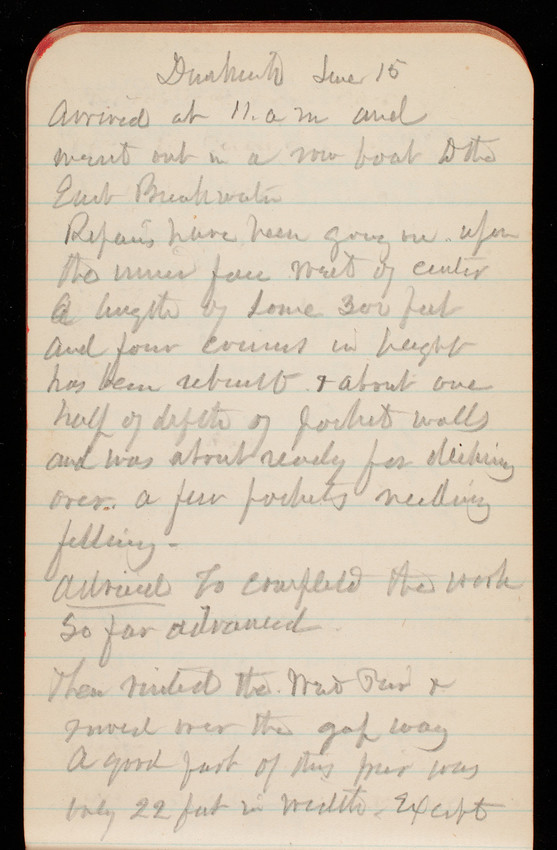 Dunkirk June 15
Arrived at 11. a m and
went out in a row boat to the
East Breakwater
Repairs have been going on upon
the inner face west of center
a length of some 300 feet
and four courses in height
has been rebuilt & about one
half of depth of pocket walls
and was about ready for decking
over. a few pockets needing
filling -
Advised to complete the work
so far advanced.
Then visited the West Pier &
moved over the gap way
A good part of this pier was
only 22 feet in width. Except